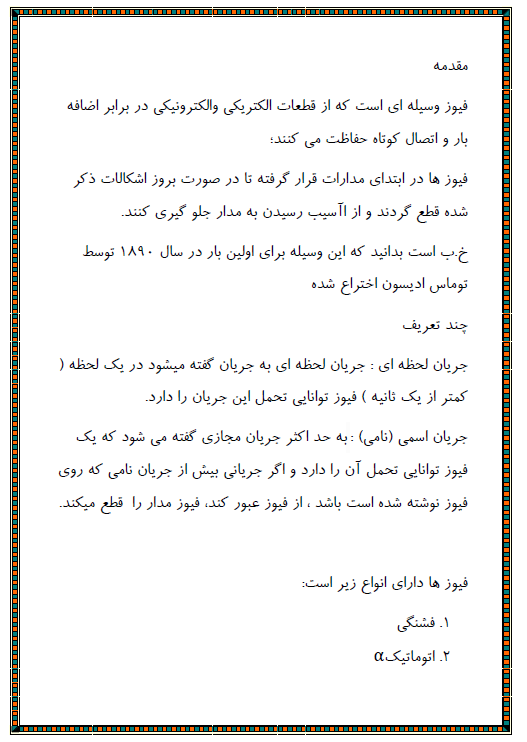 مقدمه
فیوز وسیله ای است که از قطعات الکتریکی والکترونیکی در برابر اضافه
بار و اتصال کوتاه حفاظت می کنند؛
فیوز ها در ابتدای مدارات قرار گرفته تا در صورت بروز اشکالات ذکر
شده قطع گردند و از اآسیب رسیدن به مدار جلو گیری کنند.
خ.ب است بدانید که این وسیله برای اولین بار در سال ۱۸۹۰ توسط
توماس ادیسون اختراع شده
چند تعریف
جریان لحظه ای : جریان لحظه ای به جریان گفته میشود در یک لحظه (
کمتر از یک ثانیه ) فیوز توانایی تحمل این جریان را دارد.
جریان اسمی (نامی) : به حد اکثر جریان مجازی گفته می شود که یک
فیوز توانایی تحمل آن را دارد و اگر جریانی بیش از جریان نامی که روی
فیوز نوشته شده است باشد ، از فیوز عبور کند، فیوز مدار را قطع میکند.
فیوز ها دارای انواع زیر است:
۱. فشنگی
۲. اتوماتیکα